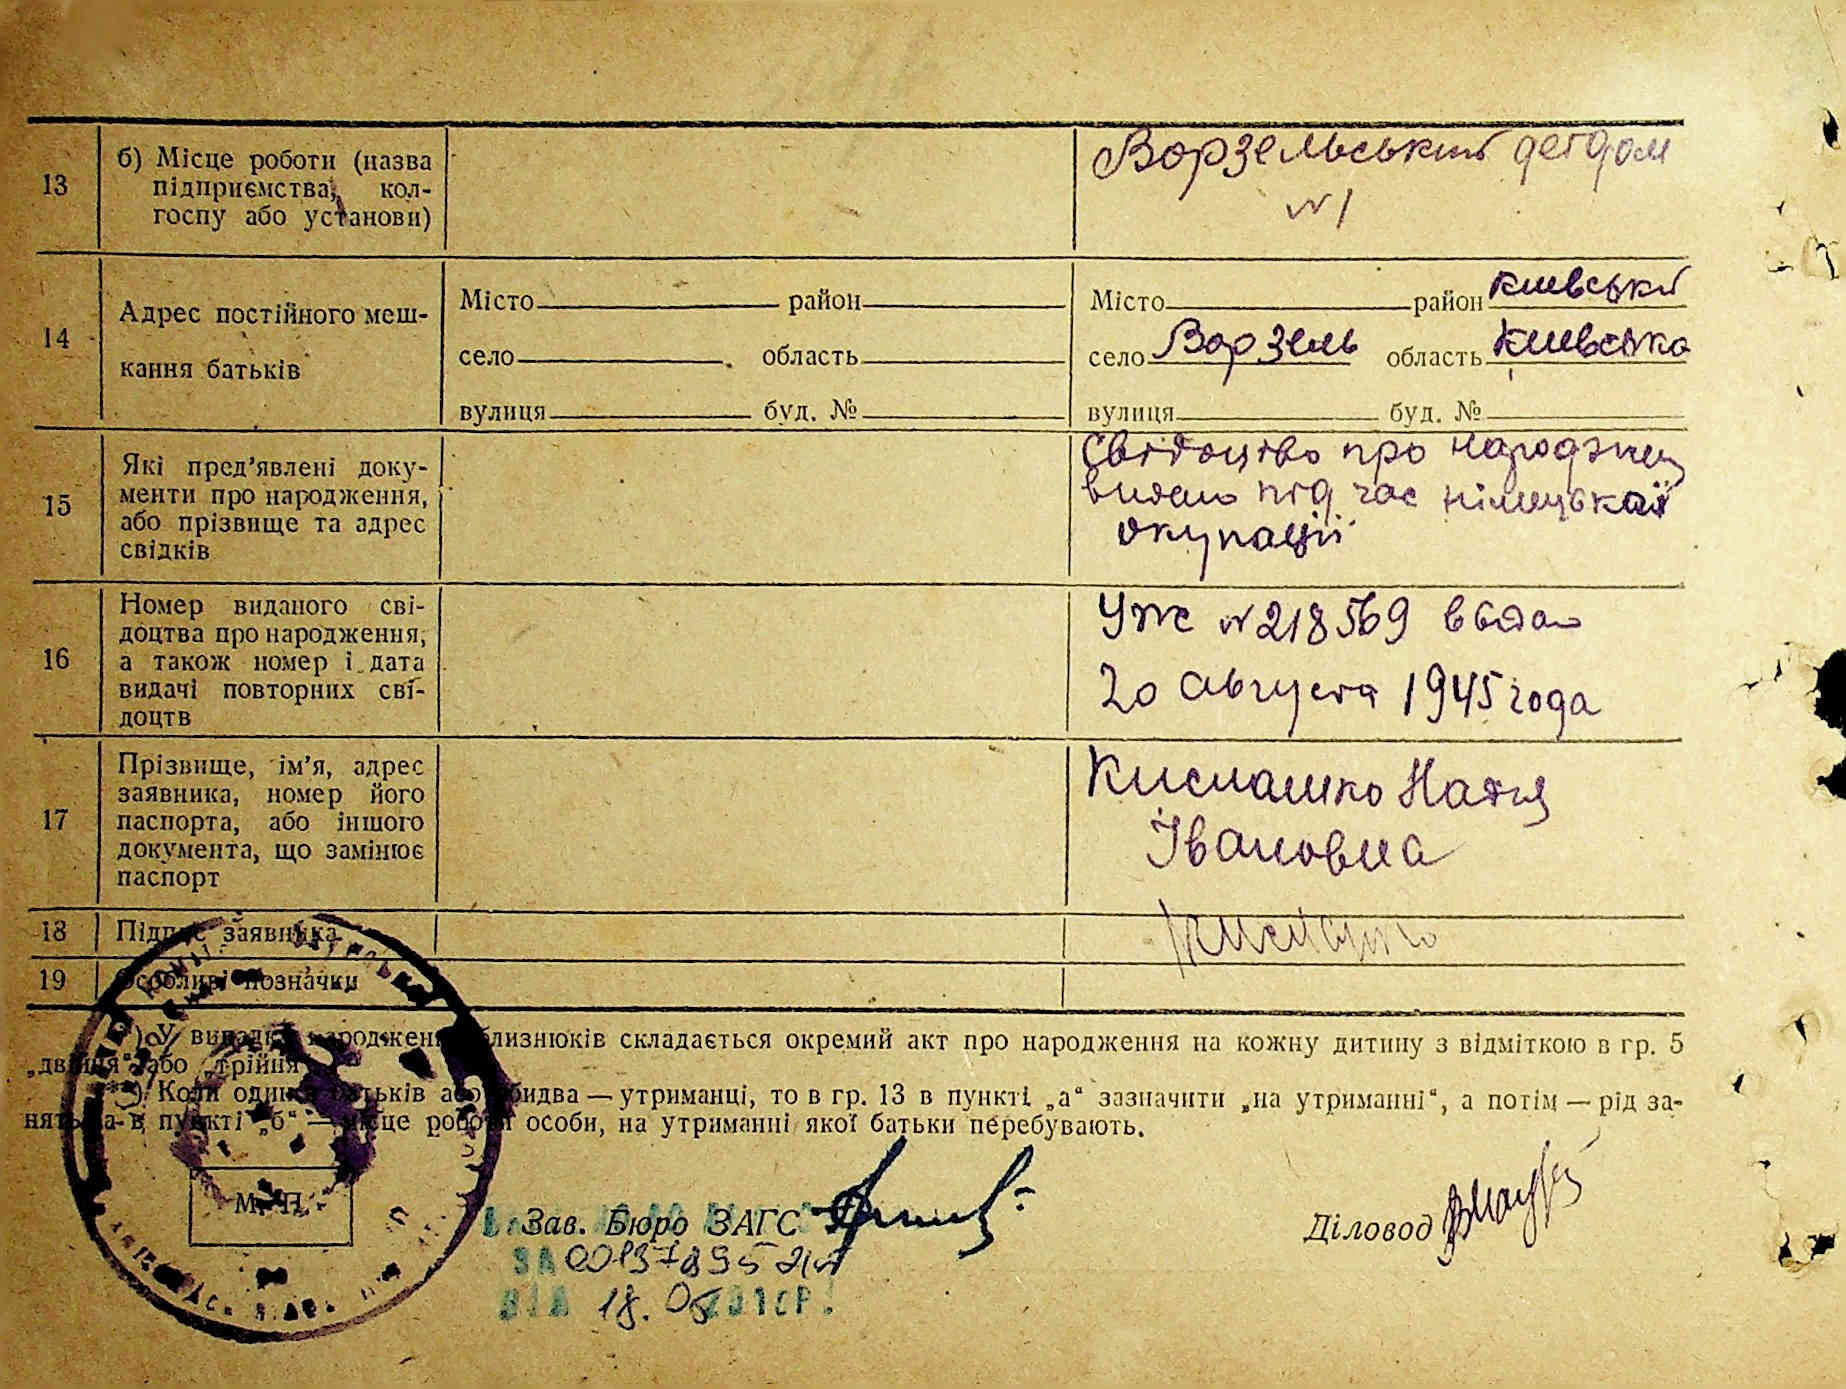 13
б) Місце роботи (назва
підприємства, кол-
госпу або установи)
Ворзельський детдом
№1
14
Адрес постійного меш-
кання батьків
Місто район
село область
вулиця буд. №
Місто район Киевський
село Ворзель область Киевська
вулиця буд. №
15
Які пред’явлені доку-
менти про народження,
або прізвище та адрес
свідків
Свідоцтво про
видано під час німецькой
окупації
16
Номер виданого сві-
доцтва про народження,
а також номер і дата
видачі повторних сві-
доцтв
УЖ №218569
20 августа 1945 года
17
Прізвище, ім’я, адрес
заявника, номер його
паспорта, або іншого
документа, що замінює
паспорт
Івановна
18
Підпис заявника
19
Особливі позначки
*) У випадку народження близнюків складається окремий акт про народження на кожну дитину з відміткою в гр. 5
„двійня“ або „трійня“
**) Коли один з батьків або обидва — утриманці, то в гр. 13 в пункті „а“ зазначити „на утриманні“, а потім — рід за-
няття, а в пункті „б“ — місце роботи особи, на утриманні якої батьки перебувають.
М. П.
Зав. Бюро ЗАГС
Діловод
ЗА
ВІД 18. 05